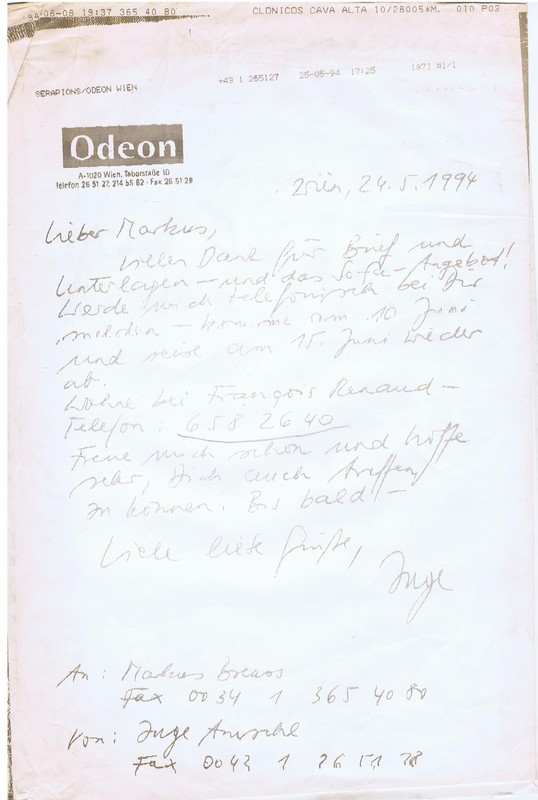 94-06-08 19:37 365 40 80 CLONICOS CAVA ALTA 10/28005*M. 010 P02
SERAPIONS/ODEON WIEN +43 1 265127 25-05-94 17:25 [87] #1/1
Odeon
A-1020 Wien, Taborstraße 10
Telefon 26 51 27, 214 55 62 · Fax 26 51 28
Wien, 24.5.1994
Lieber Markus,
vielen Dank für Brief und
Unterlagen – und das Sofa-Angebot!
Werde mich telefonisch bei Dir
melden – komme am 10 Juni
und reise am 15. Juni wieder
ab.
Wohne bei François Renaud –
Telefon: 658 26 40
Freue mich schon und hoffe
sehr, Dich auch treffen
zu können. Bis bald –
Viele liebe Grüße,
Inge
An: Markus
Fax 0034 1 365 40 80
Von: Inge
Fax 0043 1 26 51 28